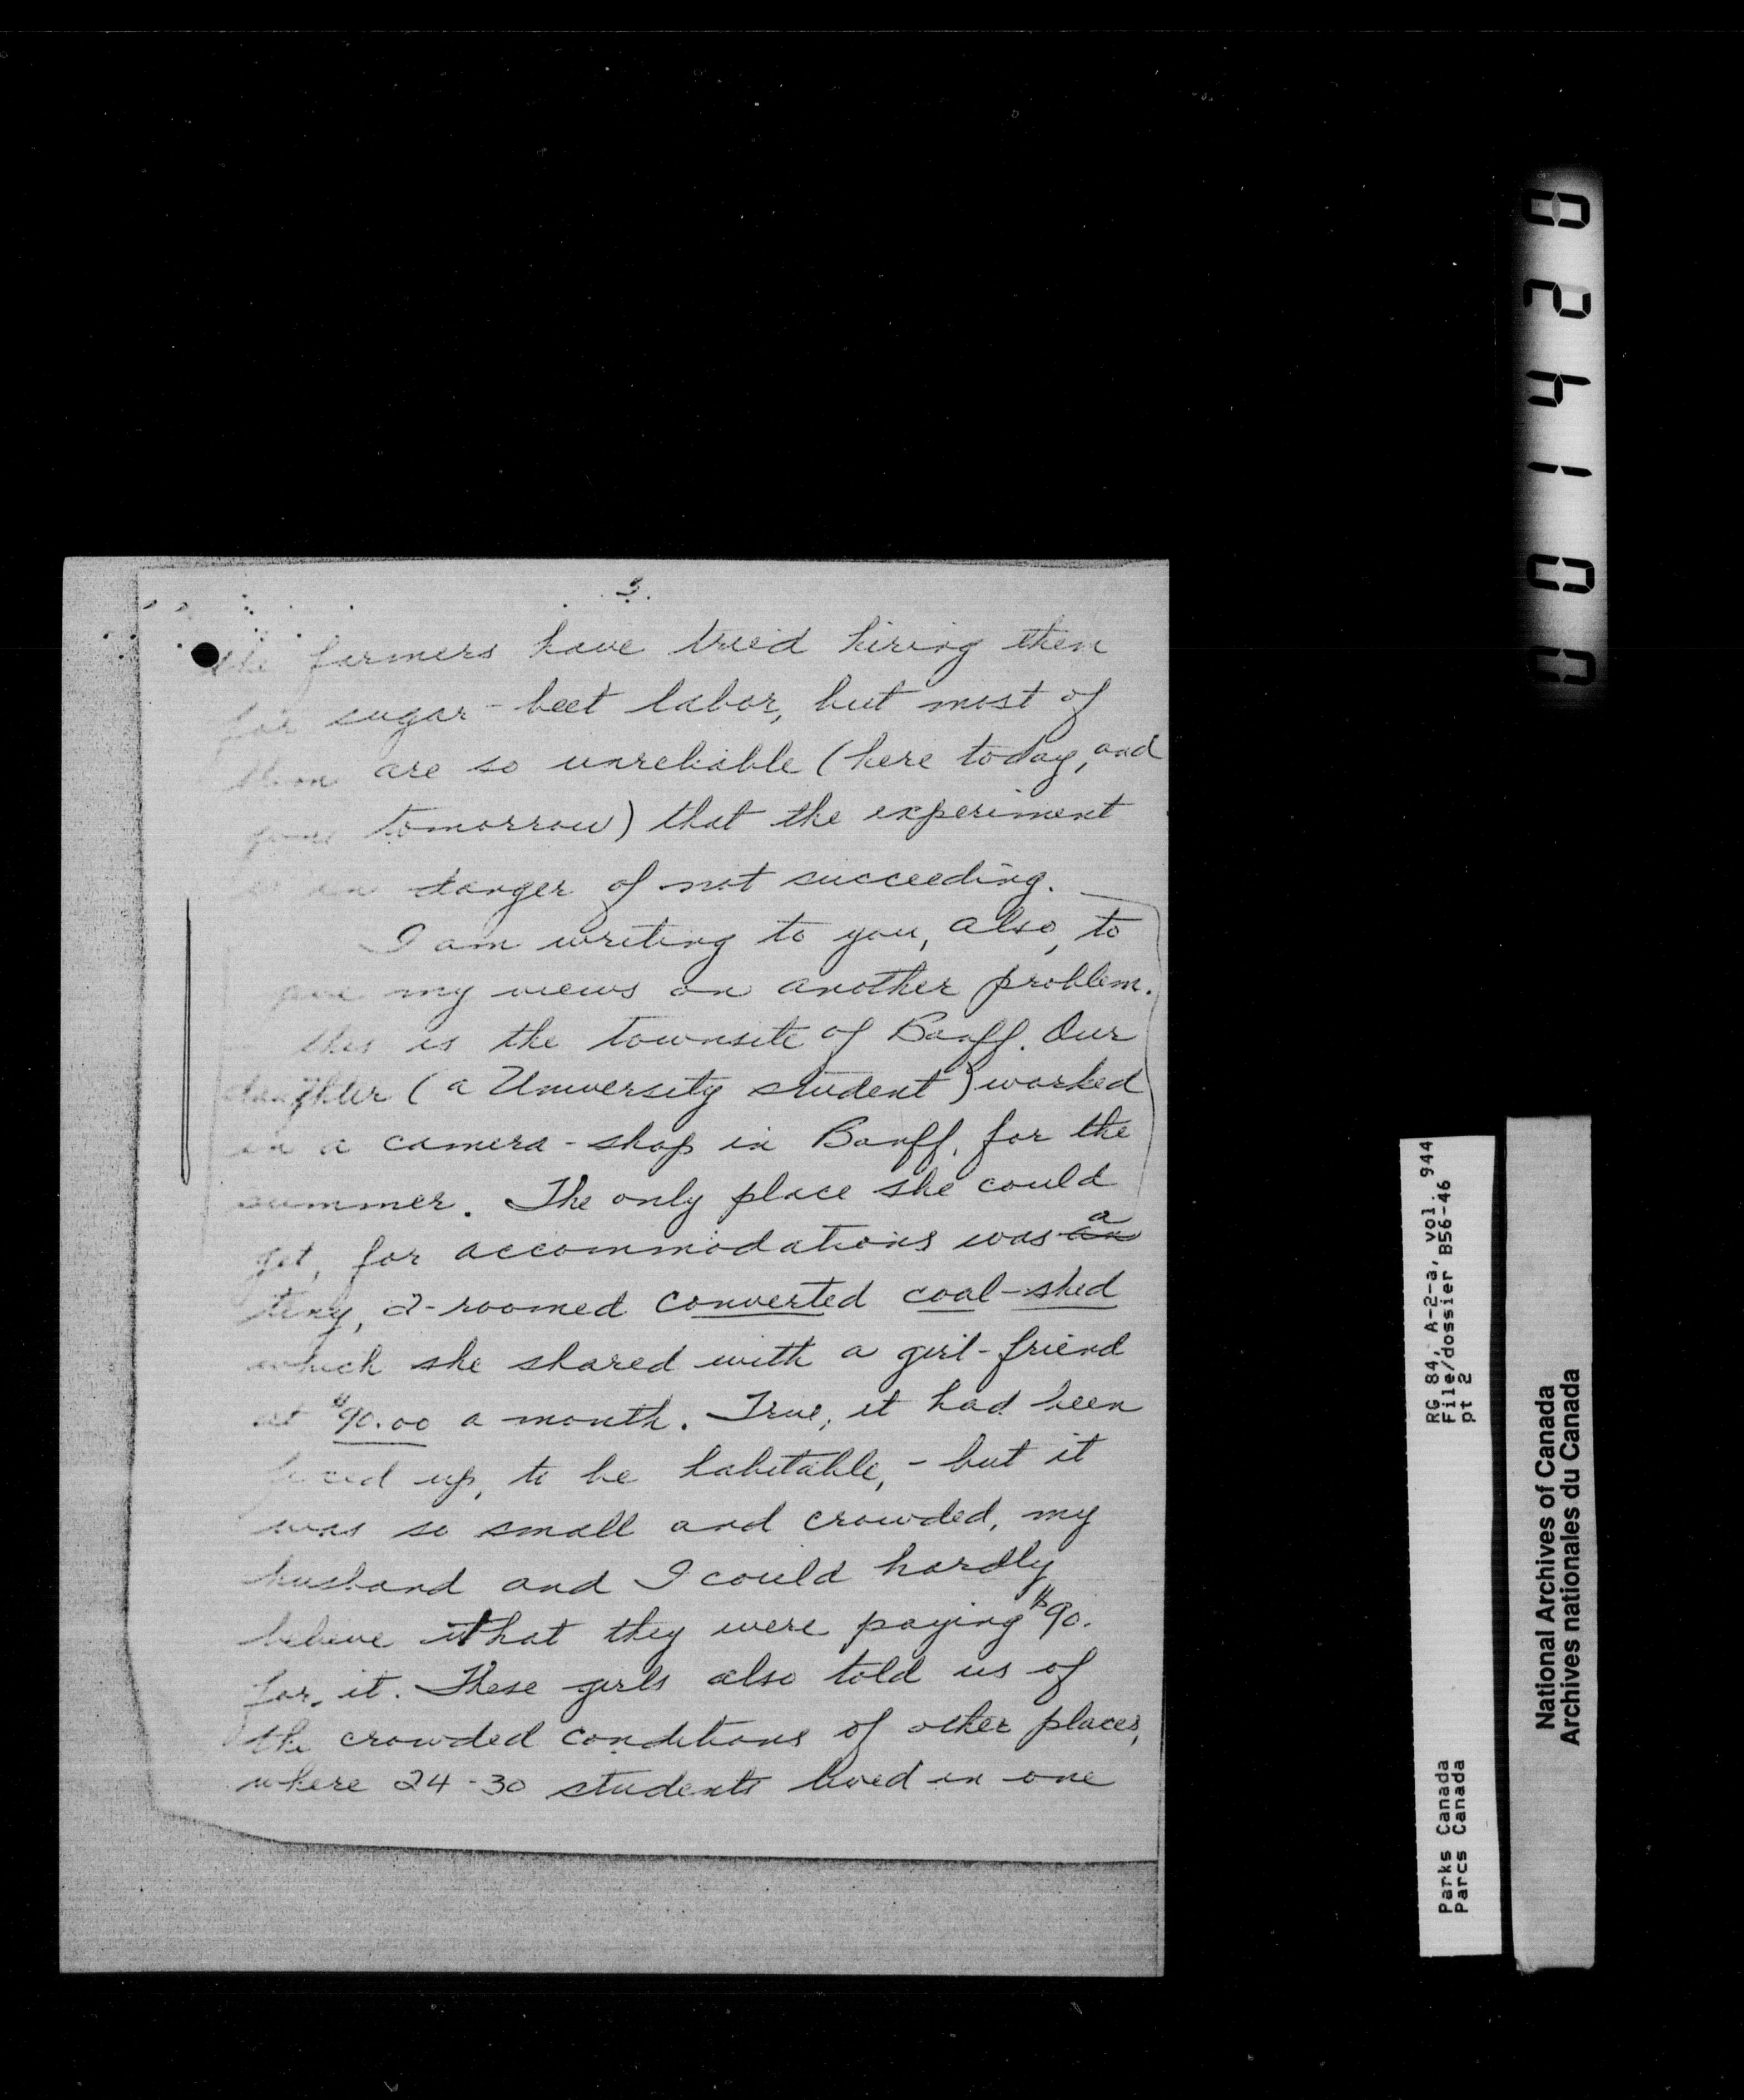 3.
the farmers have tried hiring them
for sugar-beet labor, but most of
them are so unreliable (here today, and
gone tomorrow) that the experiment
is in danger of not succeeding.
I am writing to you, also, to
give my views on another problem.
this is the townsite of Banff. Our
daughter (a University student) worked
in a camera-shop in Banff, for the
summer. The only place she could
get, for accommodations was an a
tiny, 2-roomed converted coal-shed
which she shared with a girl-friend
at $90.00 a month. True, it had been
fixed up, to be habitable, - but it
was so small and crowded, my
husband and I could hardly
believe that they were paying $90.
for it. These girls also told us of
the crowded conditions of other places,
where 24-30 students lived in one
002 4 1 0 0
RG 84, A-2-a, vol. 944
File/dossier B56-46
pt 2
Parks Canada
Parcs Canada
National Archives of Canada
Archives nationales du Canada